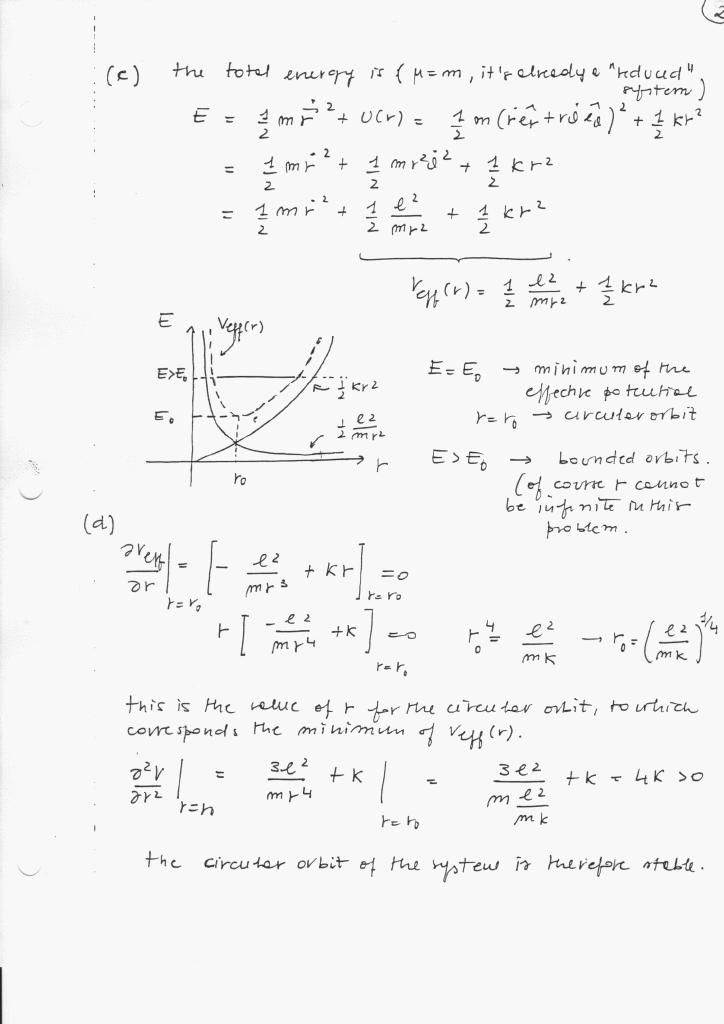 2
(c) the total energy is { μ = m, it's already a "reduced" system)
E = 1/2 m ṙ⃗² + U(r) = 1/2 m (ṙ ê_r + r θ̇ ê_θ)² + 1/2 kr²
= 1/2 m ṙ² + 1/2 m r² θ̇² + 1/2 k r²
= 1/2 m ṙ² + 1/2 ℓ²/mr² + 1/2 k r²
V_eff (r) = 1/2 ℓ²/mr² + 1/2 kr²
E
V_eff(r)
E>E₀
1/2 kr²
E₀
1/2 ℓ²/mr²
r
r₀
E = E₀ → minimum of the
effective potential
r = r₀ → circular orbit
E > E₀ → bounded orbits.
(of course r cannot
be infinite in this
problem.
(d)
∂V_eff/∂r |_{r=r₀} = [ - ℓ²/mr³ + kr ]_{r=r₀} = 0
r [ -ℓ²/mr⁴ + k ]_{r=r₀} = 0 r₀⁴ = ℓ²/mk → r₀ = (ℓ²/mk)^{1/4}
this is the value of r for the circular orbit, to which
corresponds the minimum of V_eff (r).
∂²V/∂r² |_{r=r₀} = 3ℓ²/mr⁴ + k |_{r=r₀} = 3ℓ²/(m ℓ²/mk) + k = 4k >0
the circular orbit of the system is therefore stable.